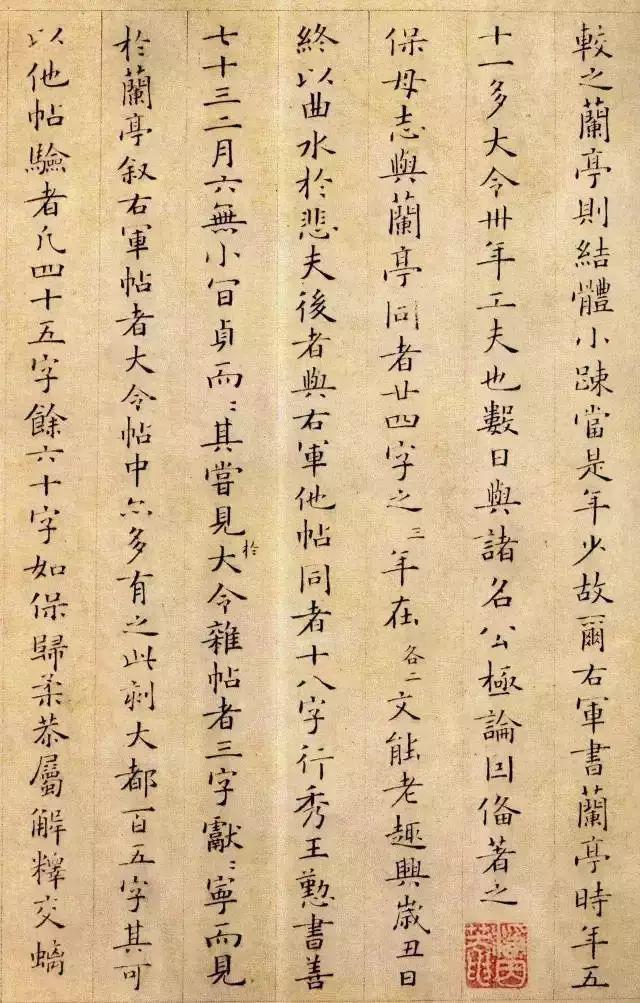 較之蘭亭則結體小踈當是年少故爾右軍書蘭亭時年五
十一多大令卅年工夫也數日與諸名公極論因俻著之
保母志與蘭亭同者廿四字之三年在各二文能老趣興歲丑日
終以曲水於悲夫後者與右軍他帖同者十八字行秀王懃書善
七十三二月六無小官貞而〻其嘗見於大令雜帖者三字獻〻寧而見
於蘭亭叙右軍帖者大令帖中亦多有之此刻大都一百五字其可
以他帖驗者凡四十五字餘六十字如保歸柔恭屬解釋交螭